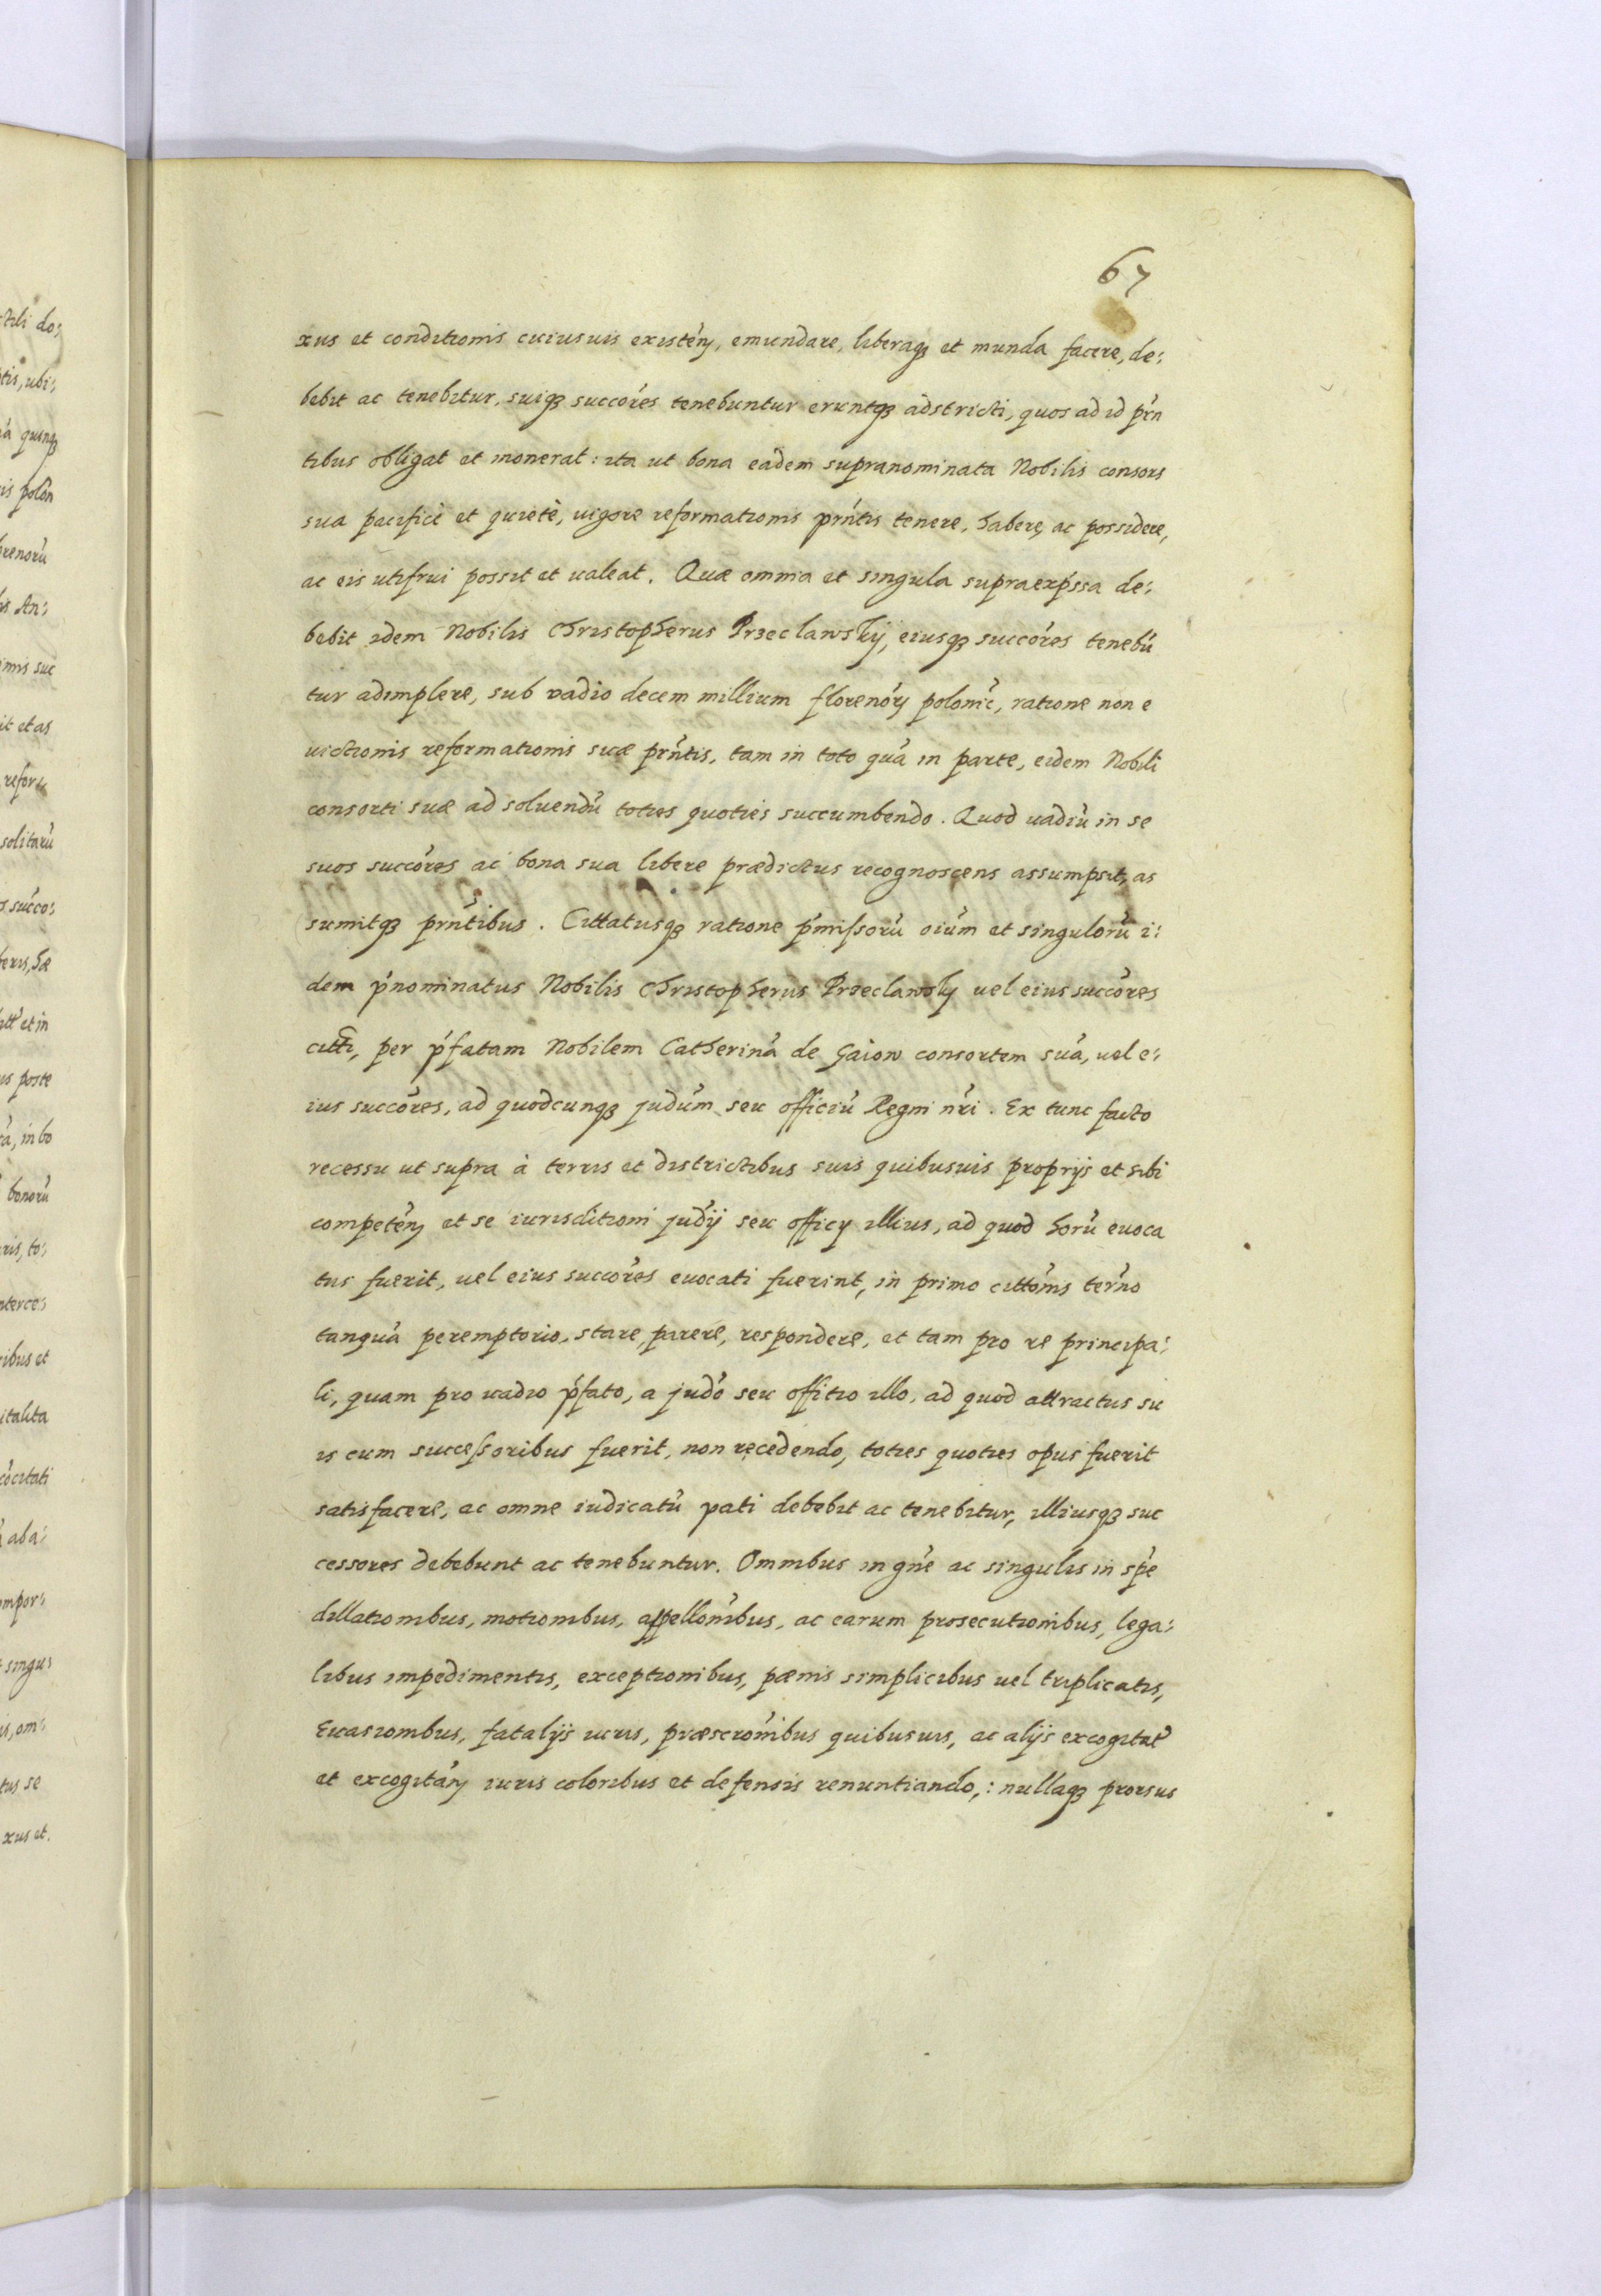 67
xus et conditionis cuiusuis existen̄, emundare, liberaq3 et munda facere, de:
bebit ac tenebitur, suiq3 succóres tenebuntur eruntq3 adstricti, quos ad id prń
tibus obligat et inonerat: ita ut bona eadem supranominata Nobilis consors
sua pacificè et quietè, vigore reformationis prńtis tenere, habere, ac possidere,
ac eis utifrui possit et ualeat. Quæ omnia et singula supraexpŕssa de:
bebit idem Nobilis Christopherus Przeclawskij, eiusq3 succóres tenebú
tur adimplere, sub vadio decem millium florenór polonić, ratione non e
uictionis reformationis suæ prńtis, tam in toto quá in parte, eidem Nobili
consorti suæ ad soluendú toties quoties succumbendo. Quod uadiú in se
suos succóres ac bona sua libere prædictus recognoscens assumpsit, as
sumitq3 prńtibus. Cittatusq3 ratione ṕmissorú oiúm et singulorú i:
dem ṕnominatus Nobilis Christopherus Przeclawsky uel eius succóres
citti, per ṕfatam Nobilem Catheriná de Gaiow consortem suá, uel e:
ius succóres, ad quodcunq3 judúm seu officiú Regni nŕi. Ex tunc facto
recessu ut supra à terris et districtibus suis quibusuis proprijs et sibi
competeń et se iurisditioni judíj seu officij illius, ad quod horú euoca
tus fuerit, uel eius succóres euocati fuerint, in primo cittónis terńo
tanquá peremptorio, stare, parere, respondere, et tam pro re principa:
li, quam pro uadio ṕfato, a judó seu offitio illo, ad quod attractus su
is cum successoribus fuerit, non recedendo, toties quoties opus fuerit
satisfacere, ac omne iudicatú pati debebit ac tenebitur, illiusq3 suc
cessores debebunt ac tenebuntur. Omnibus in gńe ac singulis in spé
dillationibus, motionibus, appellónibus, ac earum prosecutionibus, lega:
libus impedimentis, exceptionibus, pænis simplicibus uel triplicatis,
Euasionibus, fatalijs iuris, præscrónibus quibusuis, ac alijs excogitat
et excogitań iuris coloribus et defensis renuntiando,: nullaq3 prorsus